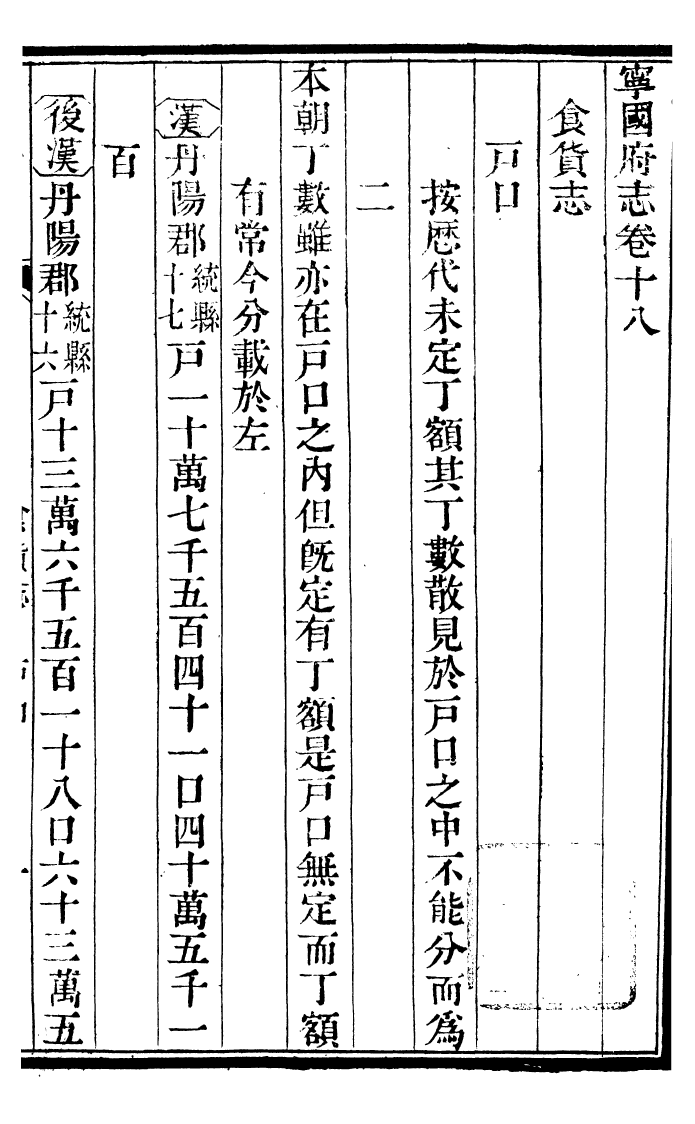 寧國府志卷十八
食貨志
戸口
按歷代未定丁額其丁數散見於戸口之中不能分而爲
二
本朝丁數雖亦在戸口之内但旣定有丁額是戸口無定而丁額
有常今分載於左
漢丹陽郡統縣十七戸一十萬七千五百四十一口四十萬五千一
百
後漢丹陽郡統縣十六戸十三萬六千五百一十八口六十三萬五